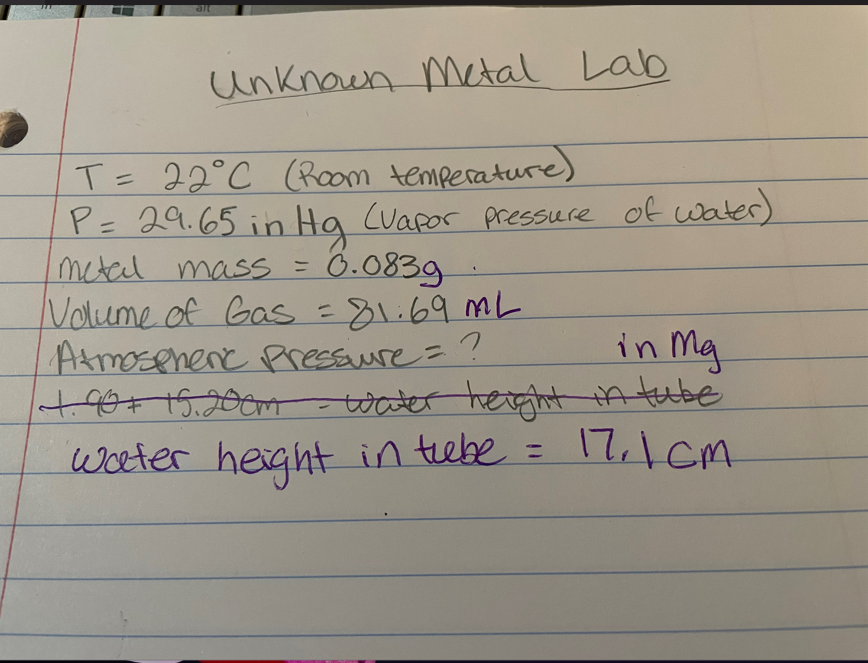 Unknown Metal Lab
T = 22°C (Room temperature)
P = 29.65 in Hg (Vapor pressure of water)
metal mass = 0.083g
Volume of Gas = 81.69 mL
Atmospheric Pressure = ? in Mg
1.90 + 15.20cm - water height in tube
water height in tube = 17.1 cm